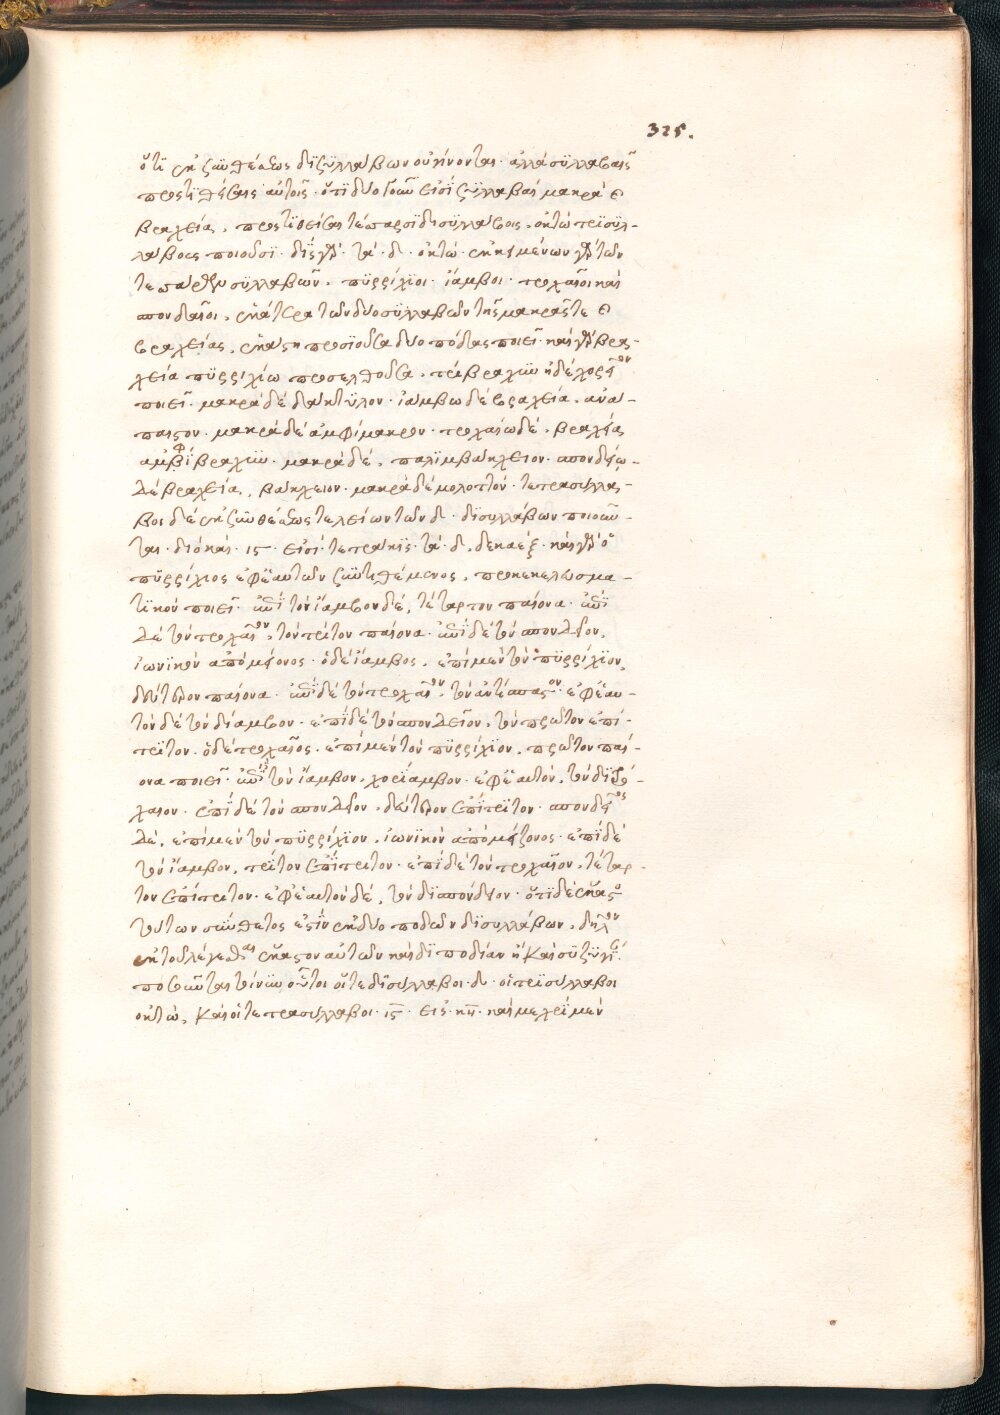 325.
ὅτι ἐκ συνθέσεως δισυλλάβων οὐ γίνονται· ἀλλὰ συλλαβαῖς
προστιθέμενης αὐτοῖς· ὅτι δύο οὖσαι εἰσὶ συλλαβαὶ μακρὰ καὶ
βραχεῖα, προστιθεῖσαι τέτταρσι δισυλλάβοις, ὀκτὼ τρισυλ-
λάβους ποιοῦσι· δὶς γὰρ· τὰ· δ· ὀκτώ· ἐκκειμένων γὰρ τῶν
τεττάρων συλλαβῶν· πυῤῥίχιοι· ἴαμβοι· τροχαῖοι καὶ
σπονδαῖοι, ἑκάτερα τῶν δύο συλλαβῶν τῆς μακρᾶς τε καὶ
βραχείας, ἑκάστη προσιοῦσα δύο πόδας ποιεῖ· καὶ γὰρ βρα-
χεῖα πυῤῥιχίω προσελθοῦσα, τρίβραχυν ἠδὲ χορεῖον
ποιεῖ· μακρὰ δὲ δάκτυλον· ἰάμβω δὲ βραχεῖα, ἀνά-
παιστον· μακρὰ δὲ ἀμφίμακρον· τροχαίω δὲ, βραχεῖα
ἀμφίβραχυν· μακρὰ δὲ, παλιμβάκχειον· σπονδείω
δὲ βραχεῖα, βάκχειον· μακρὰ δὲ μολοττόν· τετρασύλλα-
βοι δὲ ἐκ συνθέσεως τελείων τῶν δ· δισυλλάβων ποιοῦν-
ται· διὸ καὶ· ις· εἰσί· τετράκις· τὰ· δ, δεκαέξ· καὶ γὰρ ὁ
πυῤῥίχιος ἐφ' ἑαυτὸν συντιθέμενος, προκελευσμα-
τικὸν ποιεῖ· ἐπὶ τὸν ἴαμβον δὲ, τέταρτον παίονα· ἐπὶ
δὲ τὸν τροχαῖον, τὸν τρίτον παίονα· ἐπὶ δὲ τὸν σπονδεῖον,
ἰωνικὸν ἀπὸ μείονος· ὁ δὲ ἴαμβος, ἐπὶ μὲν τὸν πυῤῥίχιον,
δεύτερον παίονα· ἐπὶ δὲ τὸν τροχαῖον, τὸν ἀντίσπαστον· ἐφ' ἑαυ-
τὸν δὲ τὸν διΐαμβον· ἐπὶ δὲ τὸν σπονδεῖον, τὸν πρῶτον ἐπί-
τριτον· ὁ δὲ τροχαῖος· ἐπὶ μὲν τὸν πυῤῥίχιον, πρῶτον παί-
ονα ποιεῖ· ἐπὶ δὲ τὸν ἴαμβον, χορίαμβον· ἐφ' ἑαυτὸν, τὸν διτρό-
χαιον· ἐπὶ δὲ τὸν σπονδεῖον, δεύτερον ἐπίτριτον· σπονδεῖος
δὲ, ἐπὶ μὲν τὸν πυῤῥίχιον, ἰωνικὸν ἀπὸ μείζονος· ἐπὶ δὲ
τὸν ἴαμβον, τρίτον ἐπίτριτον· ἐπὶ δὲ τὸν τροχαῖον, τέταρ-
τον ἐπίτριτον· ἐφ' ἑαυτὸν δὲ, τὸν δισπόνδειον· ὅτι δὲ ἕκαστος
τούτων σύνθετος ἐστὶν ἐκ δύο ποδῶν δισυλλάβων, δῆλον
ἐκ τοῦ λέγεσθαι ἕκαστον αὐτῶν καὶ διποδίαν ἢ καὶ συζυγίαν·
ποσοῦνται τοίνυν οὗτοι οἵτε δισύλλαβοι· δ· οἱ τρισύλλαβοι
ὀκτὼ, καὶ οἱ τετρασύλλαβοι· ις· εἰς· κη· καὶ μέχρι μὲν